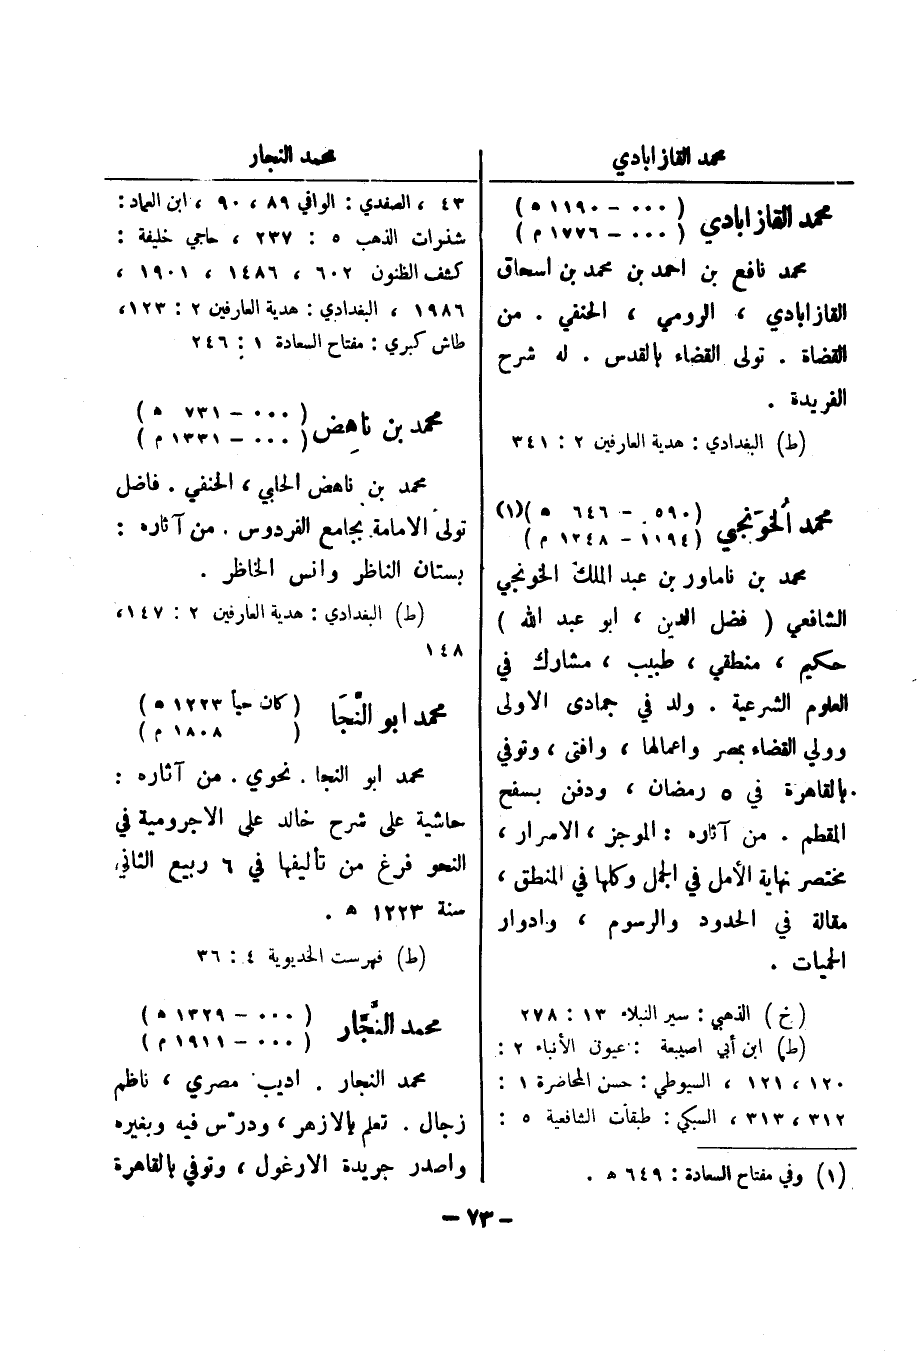 محمد القازابادي
محمد القازابادي
( ٠٠٠ - ١١٩٠ ه )
( ٠٠٠ - ١٧٧٦ م )
محمد نافع بن احمد بن محمد بن اسحاق
القازابادي ، الرومي ، الحنفي . من
القضاة . تولى القضاء بالقدس . له شرح
الفريدة .
(ط) البغدادي : هدية العارفين ٢ : ٣٤١
محمد الخُونَجي
(٥٩٠ - ٦٤٦ ه )(١)
(١١٩٤ - ١٢٤٨ م )
محمد بن ناماور بن عبد الملك الخونجي
الشافعي ( فضل الدين ، ابو عبد الله )
حكيم ، منطقي ، طبيب ، مشارك في
العلوم الشرعية . ولد في جمادى الاولى
وولي القضاء بمصر واعمالها ، وافتى ، وتوفي
بالقاهرة في ٥ رمضان ، ودفن بسفح
المقطم . من آثاره : الموجز ، الاسرار ،
مختصر نهاية الأمل في الجمل وكلها في المنطق ،
مقالة في الحدود والرسوم ، وادوار
الحميات .
(خ) الذهبي : سير النبلاء ١٣ : ٢٧٨
(ط) ابن أبي اصيبعة : عيون الأنباء ٢ :
١٢٠ ، ١٢١ ، السيوطي : حسن المحاضرة ١ :
٣١٢ ، ٣١٣ ، السبكي : طبقات الشافعية ٥ :
(١) وفي مفتاح السعادة : ٦٤٩ ه .
محمد النجار
٤٣ ، الصفدي : الوافي ٨٩ ، ٩٠ ، ابن العماد :
شذرات الذهب ٥ : ٢٣٧ ، حاجي خليفة :
كشف الظنون ٦٠٢ ، ١٤٨٦ ، ١٩٠١ ،
١٩٨٦ ، البغدادي : هدية العارفين ٢ : ١٢٣،
طاش كبري : مفتاح السعادة ١ : ٢٤٦
محمد بن ناهِض
( ٠٠٠ - ٧٣١ ه )
( ٠٠٠ - ١٣٣١ م )
محمد بن ناهض الحلبي ، الحنفي . فاضل
تولى الامامة بجامع الفردوس . من آثاره :
بستان الناظر وانس الخاظر .
(ط) البغدادي : هدية العارفين ٢ : ١٤٧،
١٤٨
محمد ابو النَّجَا
( كان حياً ١٢٢٣ ه )
( ١٨٠٨ م )
محمد ابو النجا . نحوي . من آثاره :
حاشية على شرح خالد على الاجرومية في
النحو فرغ من تأليفها في ٦ ربيع الثاني
سنة ١٢٢٣ ه .
(ط) فهرست الخديوية ٤ : ٣٦
محمد النَّجَّار
( ٠٠٠ - ١٣٢٩ ه )
( ٠٠٠ - ١٩١١ م )
محمد النجار . اديب مصري ، ناظم
زجال . تعلم بالازهر ، ودرّس فيه وبغيره
واصدر جريدة الارغول ، وتوفي بالقاهرة
- ٧٣ -